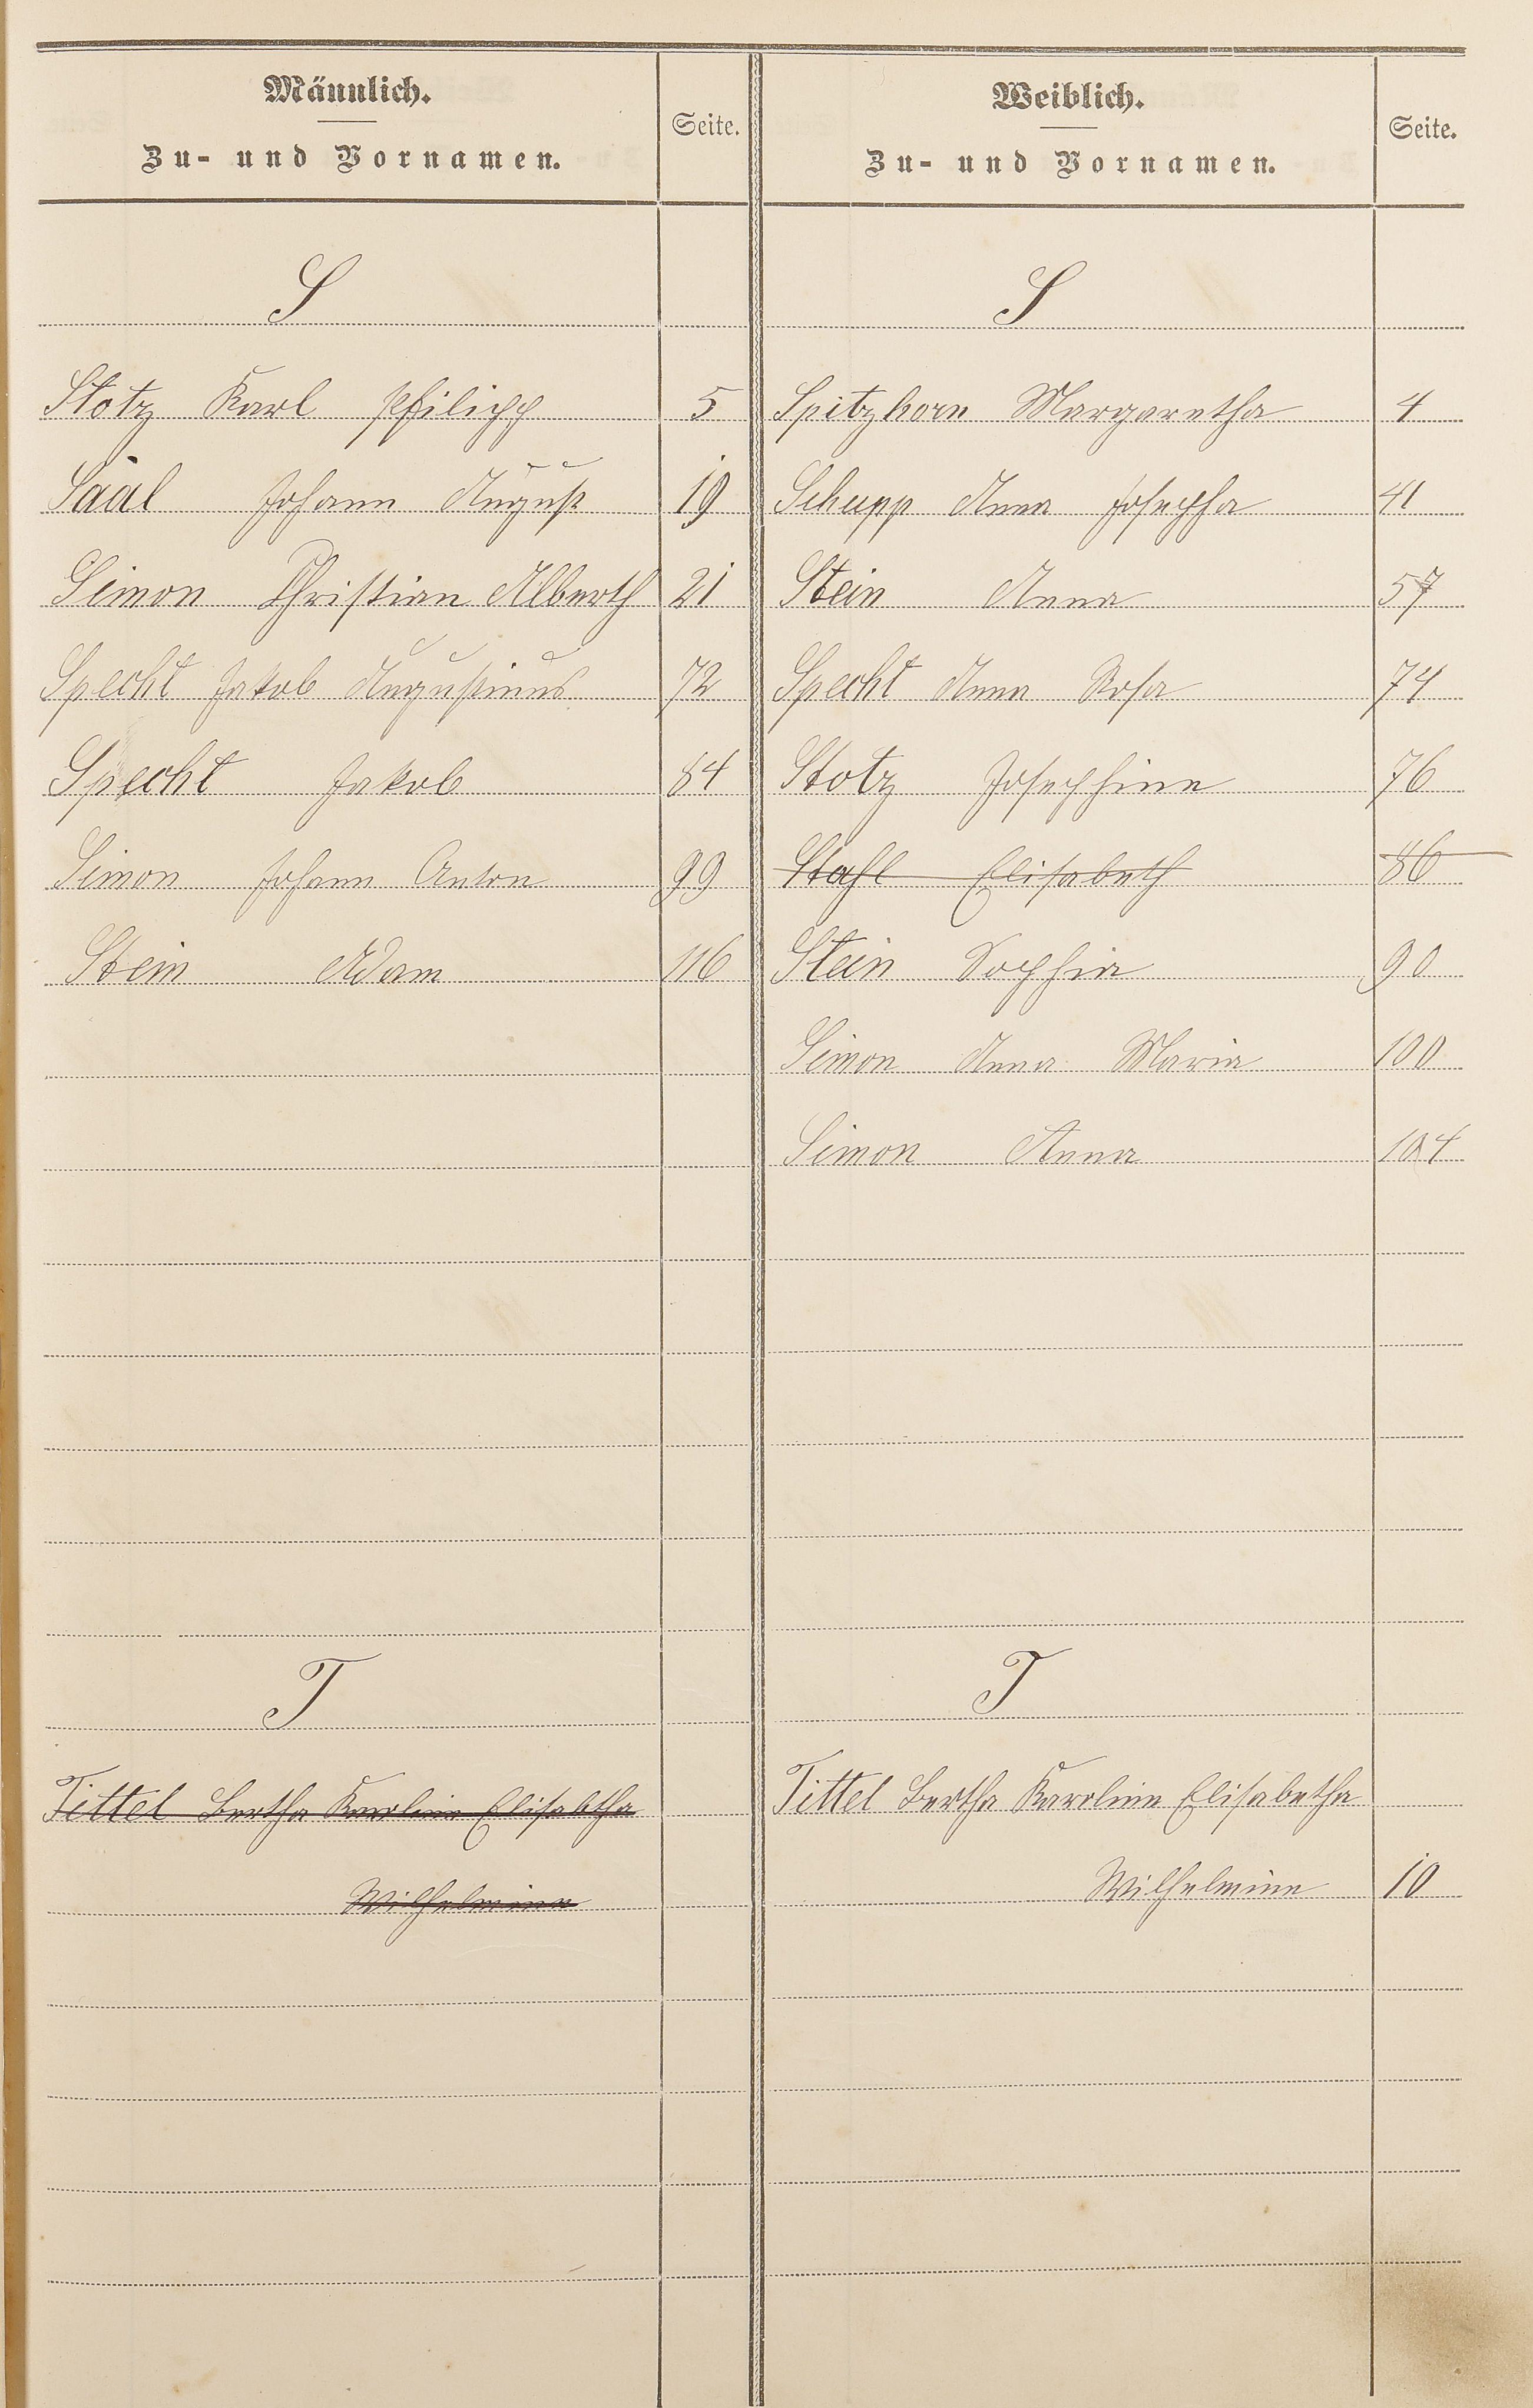 Männlich.
Zu- und Vornamen.
Seite.
Weiblich.
Zu- und Vornamen.
Seite.
S
S
Stotz Karl Philipp 5
Spitzhorn Margaretha 4
Saal Johann August 19
Schupp Anna Josepha 41
Simon Christian Alberth 21
Stein Anna 57
Specht Jakob Augustinus 72
Specht Anna Rosa 74
Specht Jakob 84
Stotz Josephine 76
Simon Johann Anton 99
Stahl Elisabeth 86
Stein Adam 116
Stein Sophia 90
Simon Anna Maria 100
Simon Anna 104
T
T
Tittel Bertha Karoline Elisabtha
Tittel Bertha Karoline Elisabetha
Wilhelmine
Wilhelmine 10